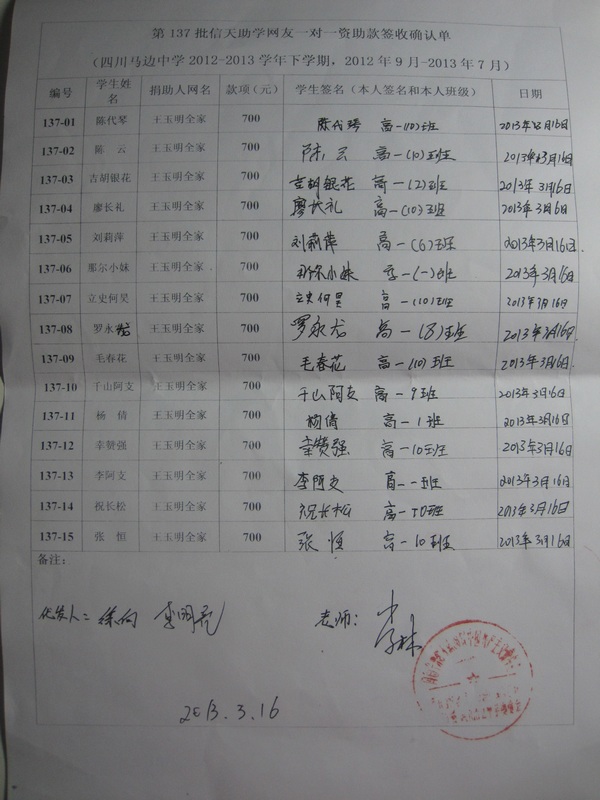 第 137 批信天助学网友一对一资助款签收确认单
（四川马边中学 2012-2013 学年下学期，2012 年 9 月-2013 年 7 月）
编号 学生姓名 捐助人网名 款项（元） 学生签名（本人签名和本人班级） 日期
137-01 陈代琴 王玉明全家 700 陈代琴 高一(10)班 2013年3月16日
137-02 陈 云 王玉明全家 700 陈云 高一(10)班 2013年3月16日
137-03 吉胡银花 王玉明全家 700 吉胡银花 高一(2)班 2013年3月16日
137-04 廖长礼 王玉明全家 700 廖长礼 高一(10)班 2013年3月16日
137-05 刘莉萍 王玉明全家 700 刘莉萍 高一(6)班 2013年3月16日
137-06 那尔小妹 王玉明全家 700 那尔小妹 高一(一)班 2013年3月16日
137-07 立史何昊 王玉明全家 700 立史何昊 高一(10)班 2013年3月16日
137-08 罗永君 王玉明全家 700 罗永君 高一(8)班 2013年3月16日
137-09 毛春花 王玉明全家 700 毛春花 高一(10)班 2013年3月16日
137-10 千山阿支 王玉明全家 700 千山阿支 高一9班 2013年3月16日
137-11 杨 倩 王玉明全家 700 杨倩 高一1班 2013年3月16日
137-12 幸赞强 王玉明全家 700 幸赞强 高一10班 2013年3月16日
137-13 李阿支 王玉明全家 700 李阿支 高一一班 2013年3月16日
137-14 祝长松 王玉明全家 700 祝长松 高一10班 2013年3月16日
137-15 张 恒 王玉明全家 700 张恒 高一10班 2013年3月16日
备注：
代发人：徐向 李明亮 老师：
2013.3.16